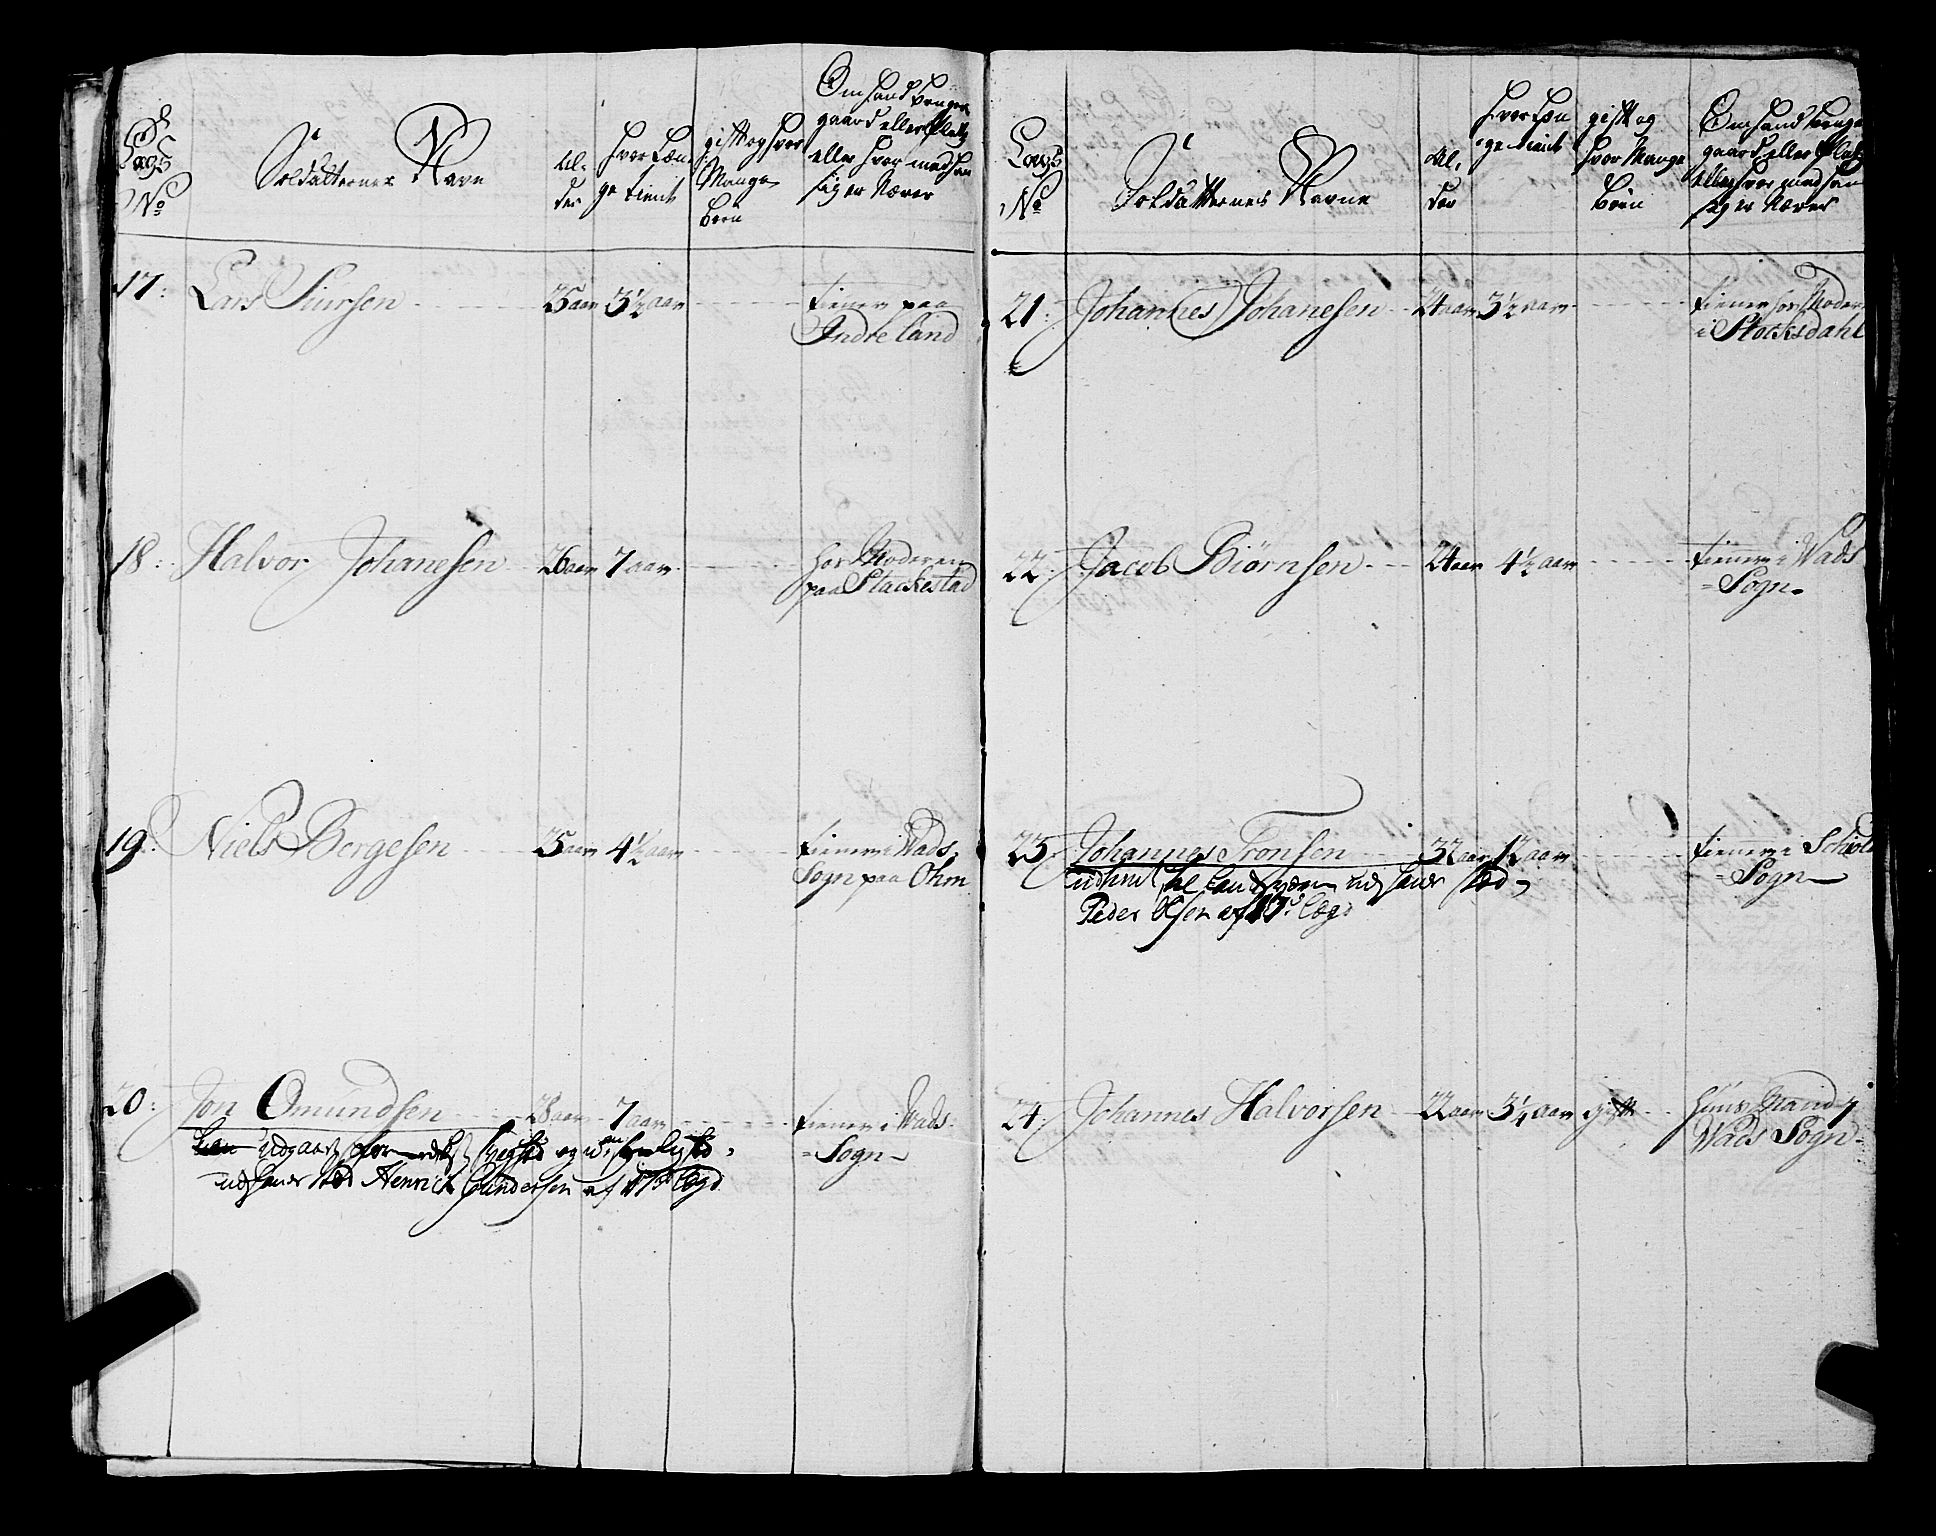 Lægs No
Soldatternes Navn
Al-
der
hvor Læn
ge tient
gift og hvor
Mange
Børn
Om hand bruger
gaard eller Platz
eller hvor med han
sig er Nærer
17: Lars Siursen 25 aar 3½ aar tiener paa
Indre Land
18: Halvor Johanesen 26 aar 7 aar hos Moderen
paa Stackestad
19: Niels Bergesen 25 aar 4½ aar tiener i Wads
Sogn paa Ohm
20: Jon Omundsen 28 aar 7 aar tiener i Wads
Sogn
udgaar for og
Henrich Gundersen af 17de Lægd
Lægs
No
Soldatternes Navne
Al-
der
hvor Læn
ge tient
gift og
hvor Mange
Børn
Om hand bruger
gaard eller Platz
eller hvor med han
sig er Nærer
21: Johannes Johanesen 24 aar 3½ aar tiener for Moder
i Stocksdahl
22: Jacob Biørnsen 24 aar 4½ aar tiener i Wads
Sogn
23: Johannes Tronsen 32 aar 12 aar tiener i Schiold
Sogn
Peder Olsen af 17de Lægd
24: Johannes Halvorsen 22 aar 3¼ aar gift huus Mand i
Wads Sogn